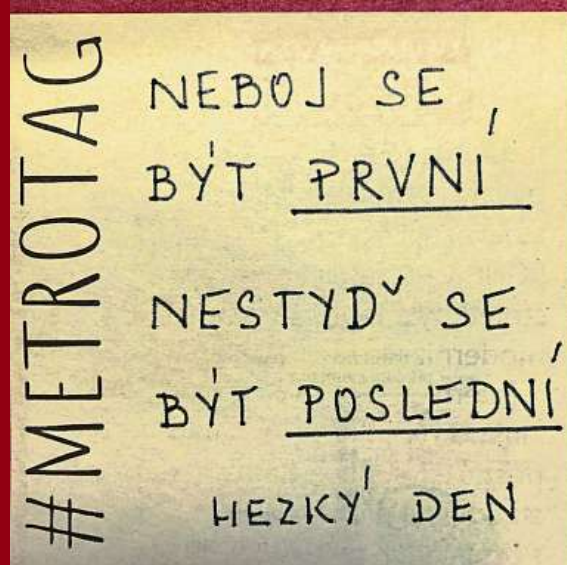 #METROTAG
NEBOJ SE
BÝT PRVNÍ
NESTYĎ SE
BÝT POSLEDNÍ
HEZKÝ DEN